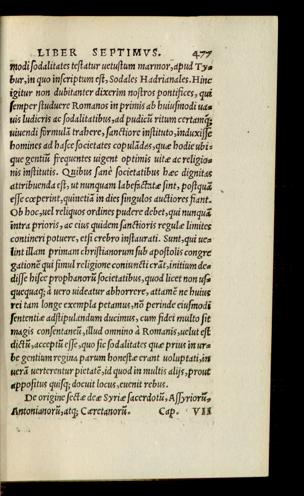 LIBER SEPTIMVS. 477
modi sodalitates testatur uetustum marmor, apud Ty-
bur, in quo inscriptum est, Sodales Hadrianales. Hinc
igitur non dubitanter dixerim nostros pontifices, qui
semper studuere Romanos in primis ab huiusmodi ua-
uis ludicris ac sodalitatibus, ad pudicū ritum certamq́;
uiuendi formulā trahere, sanctiore instituto, induxisse
homines ad hasce societates copulādas, quæ hodie ubi-
que gentiū frequentes uigent optimis uitæ ac religio-
nis institutis. Quibus sanè societatibus hæc dignitas
attribuenda est, ut nunquam labefactatæ sint, postquā
esse cœperint, quinetiā in dies singulos auctiores fiant.
Ob hoc, uel reliquos ordines pudere debet, qui nunquā
intra prioris, ac eius quidem sanctioris regulæ limites
contineri potuere, etsi crebro instaurati. Sunt, qui ue-
lint illam primam christianorum sub apostolis congre
gationē qui simul religione coniuncti erāt, initium de-
disse hisce prophanorū societatibus, quod licet non us-
quequaq; à uero uideatur abhorrere, attamē ne huius
rei tam longe exempla petamus, nō perinde eiusmodi
sententiæ adstipulandum ducimus, cum fidei multo sit
magis consentaneū, illud omnino à Romanis, uelut est
dictū, acceptū esse, quo sic sodalitates quæ prius in ur-
be gentium regina parum honestæ erant uoluptati, in
uerā uerterentur pietatē, id quod in multis alijs, prout
appositus quisq; docuit locus, euenit rebus.
De origine sectæ deæ Syriæ sacerdotū, Assyriorū,
Antonianorū, atq; Cæretanorū. Cap. VII